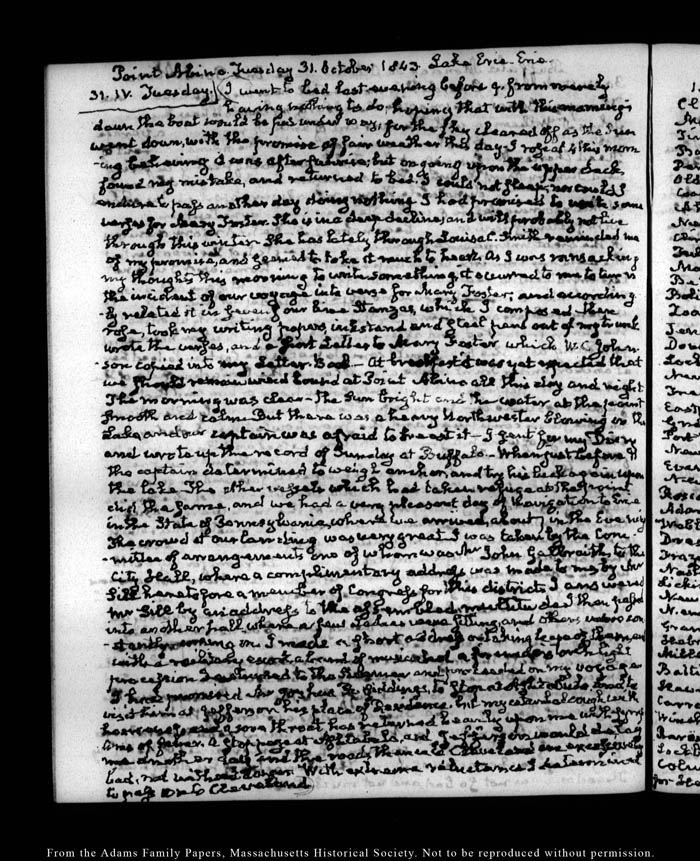 Point Abino. Tuesday 31. October 1843. Lake Erie. Erie.
31. IV. Tuesday. I went to bed last evening before 9. from merely
having nothing to do, hoping that with this morning's
dawn the boat would be fair under way, for the sky cleared off as the Sun
went down, with the promise of fair weather this day. I rose at 4 this morn
-ing believing it was after sunrise, but on going upon the upper deck
found my mistake, and returned to bed. I could not sleep, nor could I
endure to pass another day doing nothing. I had promised to write some
verses for Mary Foster. She is in a deep decline, and will probably not live
through this winter. She has lately through Louisa C. Smith reminded me
of my promise, and seemed to take it much to heart. As I was ransacking
my thoughts this morning to write something, it occurred to me to turn
the incident of our voyage into verse for Mary Foster; and according
-ly related it in seven four line Stanzas, which I composed then
rose, took my writing papers inkstand and steel pen out of my trunk
wrote the verses, and a short Letter to Mary Foster which W. C. John-
son copied into my Letter Book — At breakfast it was yet expected that
we should remain wind bound at Point Abino all this day and night
The morning was clear — the Sun bright and the water at the point
smooth and calm. But there was a heavy Northwester blowing on the
Lake and our captain was afraid to breast it — I sent for my Diary
and wrote up the record of Sunday at Buffalo — When just before 9
the captain determined to weigh anchor, and try his luck again upon
the lake. The other vessels which had taken refuge at that point
did the same, and we had a very pleasant day of navigation to Erie
in the State of Pennsylvania, where we arrived, about 7 in the Evening
The crowd at our landing was very great. I was taken by the Com
-mittee of arrangements one of whom was Mr John Galbraith, to the
City Hall, where a complimentary address was made to me by Mr
Sill heretofore a member of Congress for this district. I answered
Mr Sill by an address to the assembled multitude. I then passed
into another hall where a few Ladies were sitting, and others were con
-stantly coming in. I made a short address on taking leave of them and
with a military escort, a band of music and a torch light
procession I returned to the Steamer and proceeded on my voyage
I had promised Mr Joshua R. Giddings, to stop at Ashtabula, and to
visit him at Jefferson his place of residence, but my catarrhal cough with
hoarseness and a sore throat has returned heavily upon me with
of fever. A stoppage at Ashtabula, and Jefferson would delay
me another day and the roads thence to Cleveland are excessively
bad, not without danger. With extreme reluctance I determined
to pass on to Cleveland
From the Adams Family Papers, Massachusetts Historical Society. Not to be reproduced without permission.